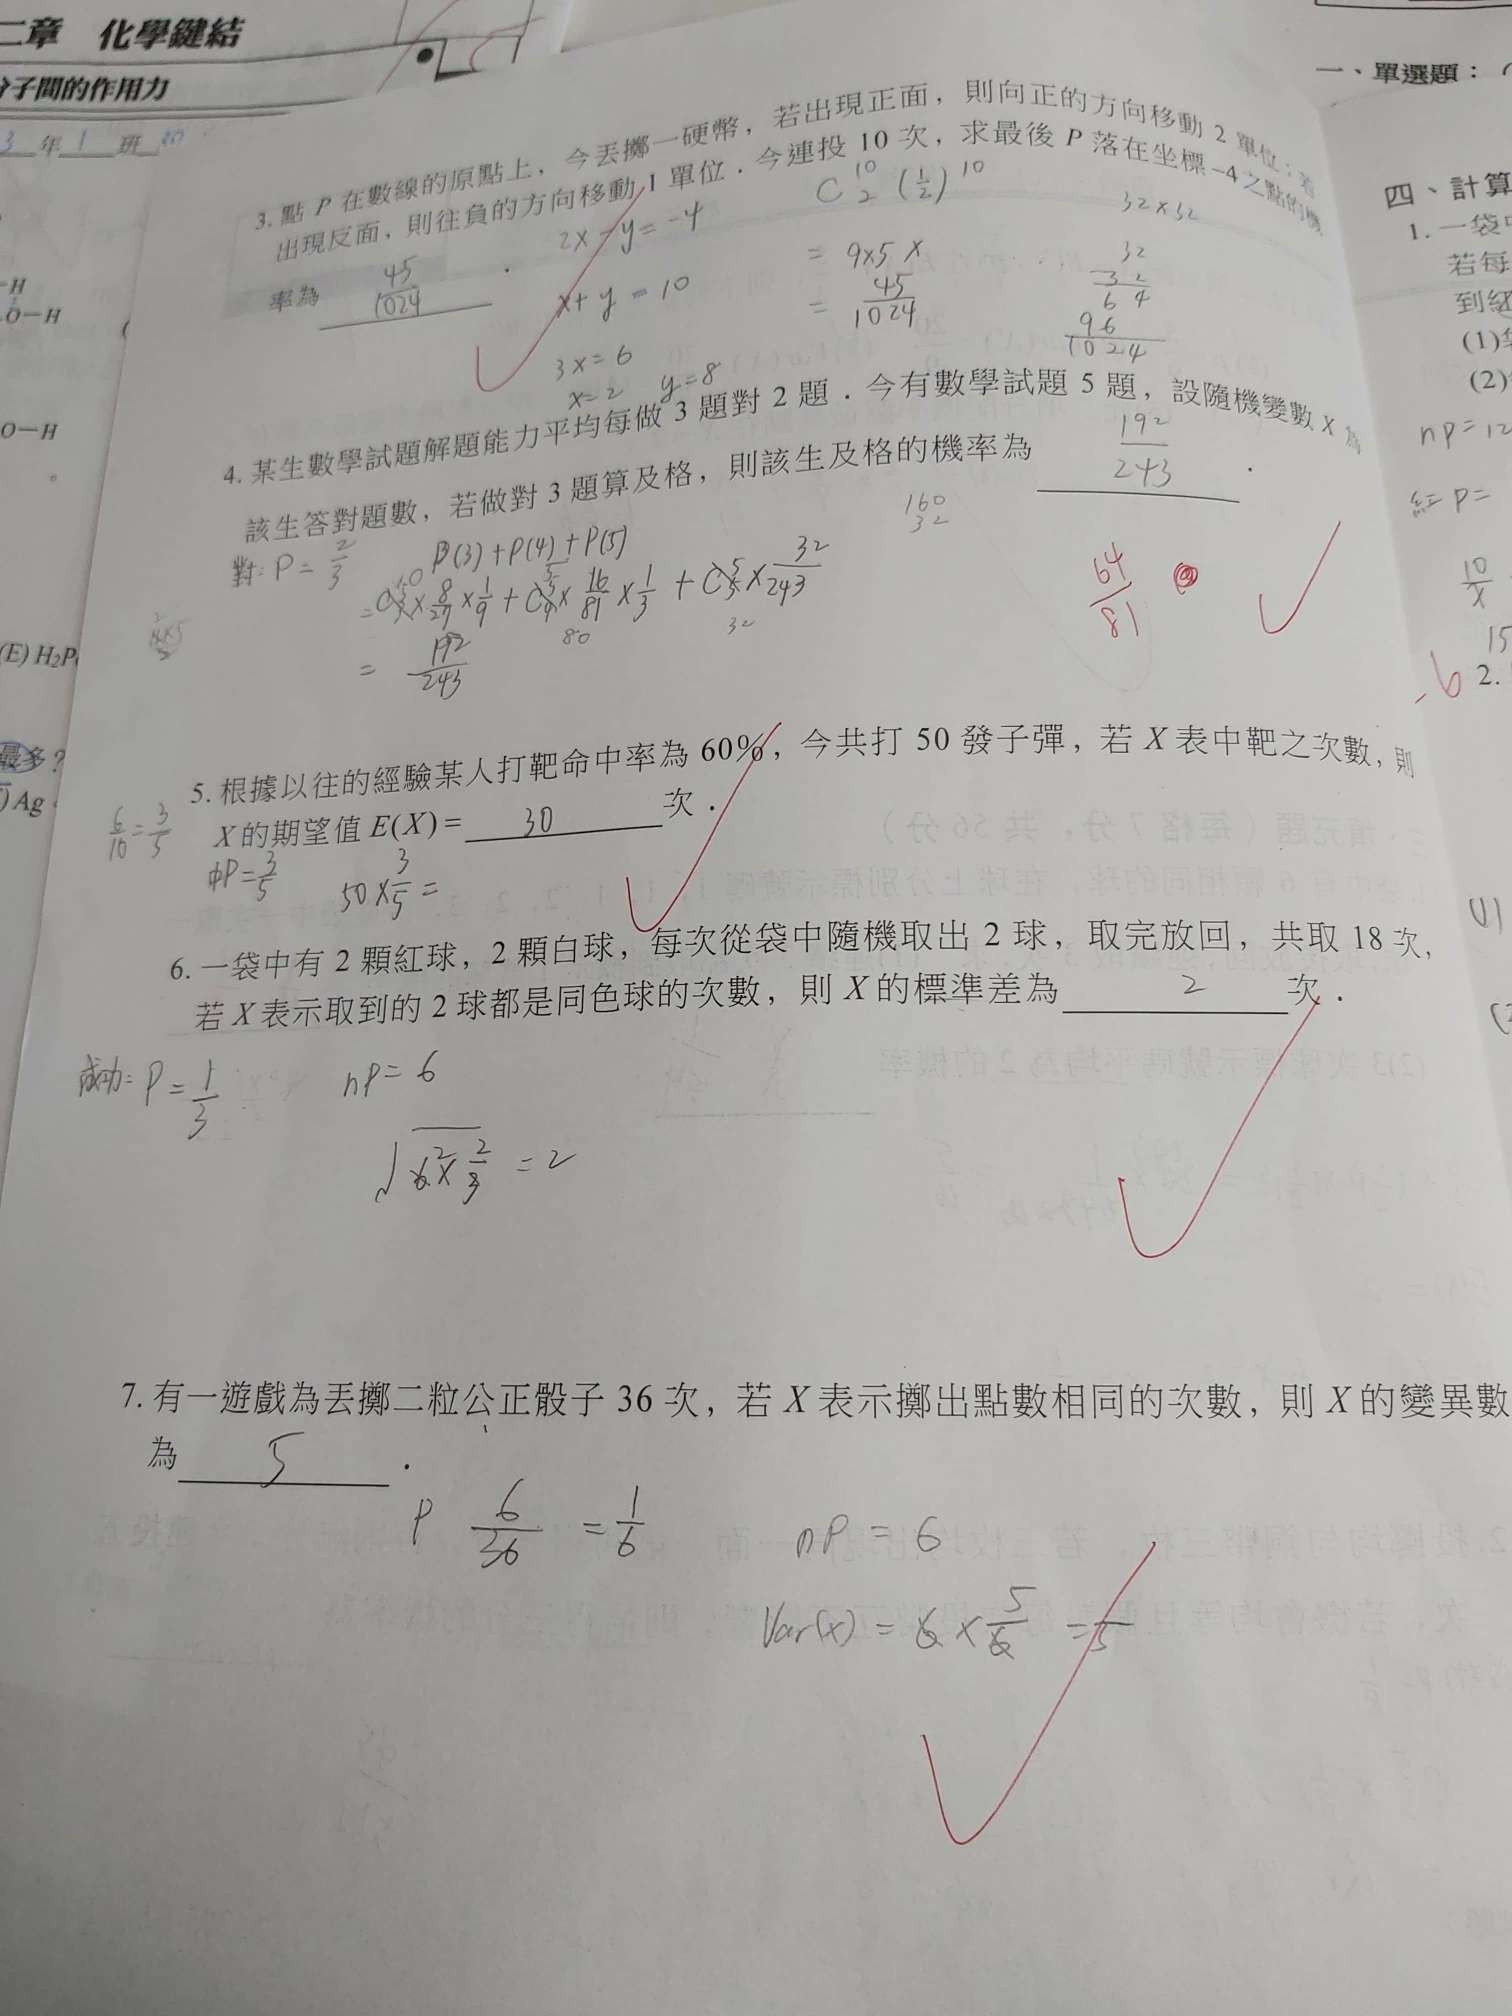 二章 化學鍵結
分子間的作用力
3 年 1 班
一、單選題：
3. 點 P 在數線的原點上，今丟擲一硬幣，若出現正面，則向正的方向移動 2 單位；若
出現反面，則往負的方向移動 1 單位．今連投 10 次，求最後 P 落在坐標 -4 之點的機
率為 45/1024 .
2x - y = -4
x + y = 10
3x = 6
x = 2 y = 8
C 10 2 (1/2) 10
= 9×5 ×
= 45/1024
32×32
32
32
64
96
1024
4. 某生數學試題解題能力平均每做 3 題對 2 題．今有數學試題 5 題，設隨機變數 X 為
該生答對題數，若做對 3 題算及格，則該生及格的機率為 192/243 .
對: P = 2/3
P(3) + P(4) + P(5)
160
32
80
32
= 192/243
64/81
5. 根據以往的經驗某人打靶命中率為 60%，今共打 50 發子彈，若 X 表中靶之次數，則
X 的期望值 E(X) = 30 次．
6/10 = 3/5
中P = 3/5
50 × 3/5 =
6. 一袋中有 2 顆紅球，2 顆白球，每次從袋中隨機取出 2 球，取完放回，共取 18 次，
若 X 表示取到的 2 球都是同色球的次數，則 X 的標準差為 2 次．
成功: P = 1/3
nP = 6
= 2
7. 有一遊戲為丟擲二粒公正骰子 36 次，若 X 表示擲出點數相同的次數，則 X 的變異數
為 5 .
P 6/36 = 1/6
nP = 6
Var(x) = 6 × 5/6 = 5
四、計算
1. 一袋中
若每
到紅
(1)
(2)
np = 12
紅 P =
10/x
15
-6
2.
-H
O-H
O-H
(E) H₂P
最多？
Ag